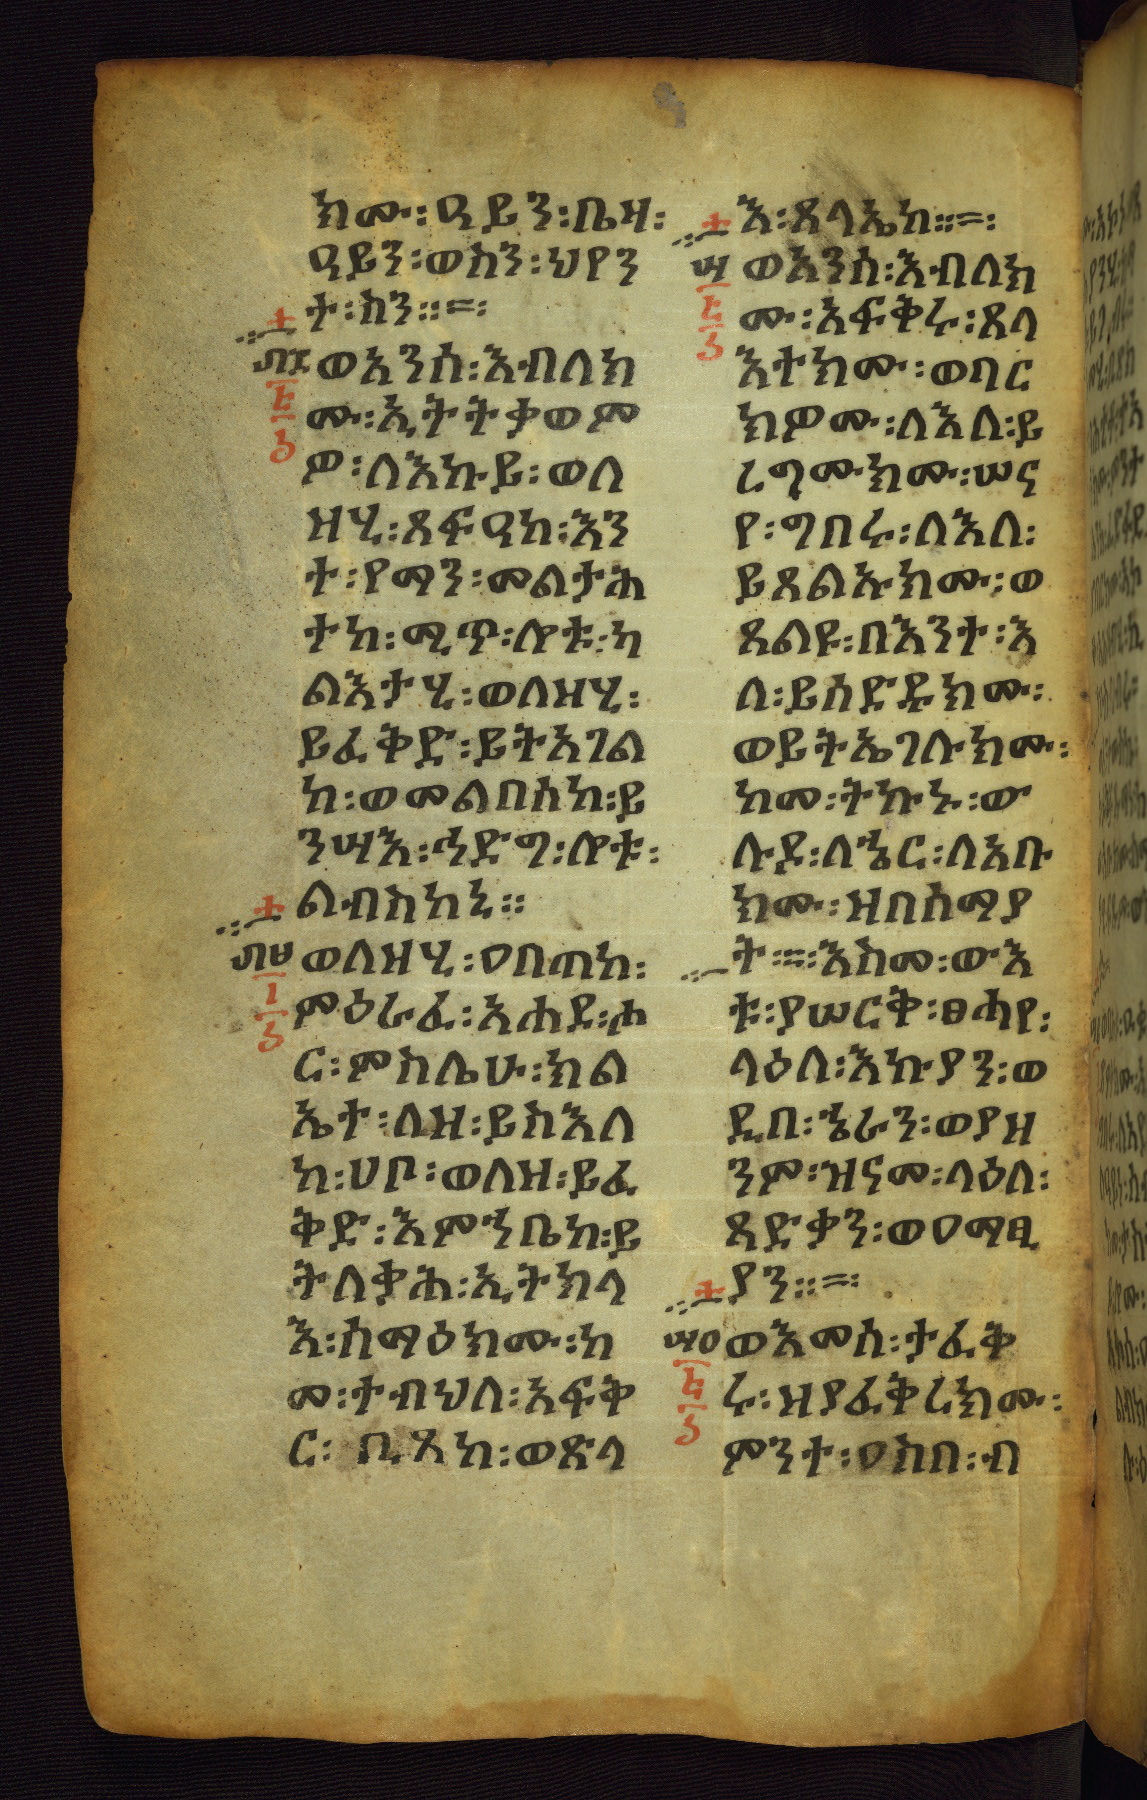 ክሙ፡ዓይን፡ቤዛ፡
ዓይን፡ወስን፡ህየን
ተ፡ስን።=፡
ወአንሰ፡እብለክ
ሙ፡ኢትትቃወም
ዎ፡ለእኩይ፡ወለ
ዝሂ፡ጸፍዓከ፡እን
ተ፡የማን፡መልታሕ
ተከ፡ሚጥ፡ሎቱ፡ካ
ልእታሂ፡ወለዘሂ፡
ይፈቅድ፡ይትአገል
ከ፡ወመልበሰከ፡ይ
ንሣእ፡ኅድግ፡ሎቱ፡
ልብስከኒ።
ወለዘሂ፡ዐበጠከ፡
ምዕራፈ፡አሐደ፡ሑ
ር፡ምስሌሁ፡ክል
ኤተ፡ለዘ፡ይስእለ
ከ፡ሀቦ፡ወለዘ፡ይፈ
ቅድ፡እምኀቤከ፡ይ
ትለቃሕ፡ኢትክላ
እ፡ሰማዕክሙ፡ከ
መ፡ተብህለ፡አፍቅ
ር፡ ቢጸከ፡ወጽላ
እ፡ጸላኤከ።=፡
ወአንሰ፡እብለክ
ሙ፡አፍቅሩ፡ጸላ
እተክሙ፡ወባር
ክዎሙ፡ለእለ፡ይ
ረግሙክሙ፡ሠና
የ፡ግበሩ፡ለእለ፡
ይጸልኡክሙ፡ወ
ጸልዩ፡በእንተ፡እ
ለ፡ይሰድዱክሙ፡
ወይትኤገሉክሙ፡
ከመ፡ትኩኑ፡ው
ሉደ፡ለኄር፡ለአቡ
ክሙ፡ዝበሰማያ
ት፡=፡እስመ፡ውእ
ቱ፡ያሠርቅ፡ፀሓየ፡
ላዕለ፡እኩያን፡ወ
ዲበ፡ኄራን፡ወያዘ
ንም፡ዝናመ፡ላዕለ፡
ጻድቃን፡ወዐማፂ
ያን።=፡
ወእመሰ፡ታፈቅ
ሩ፡ዝያፈቅረክሙ፡
ምንተ፡ዐስበ፡ብ